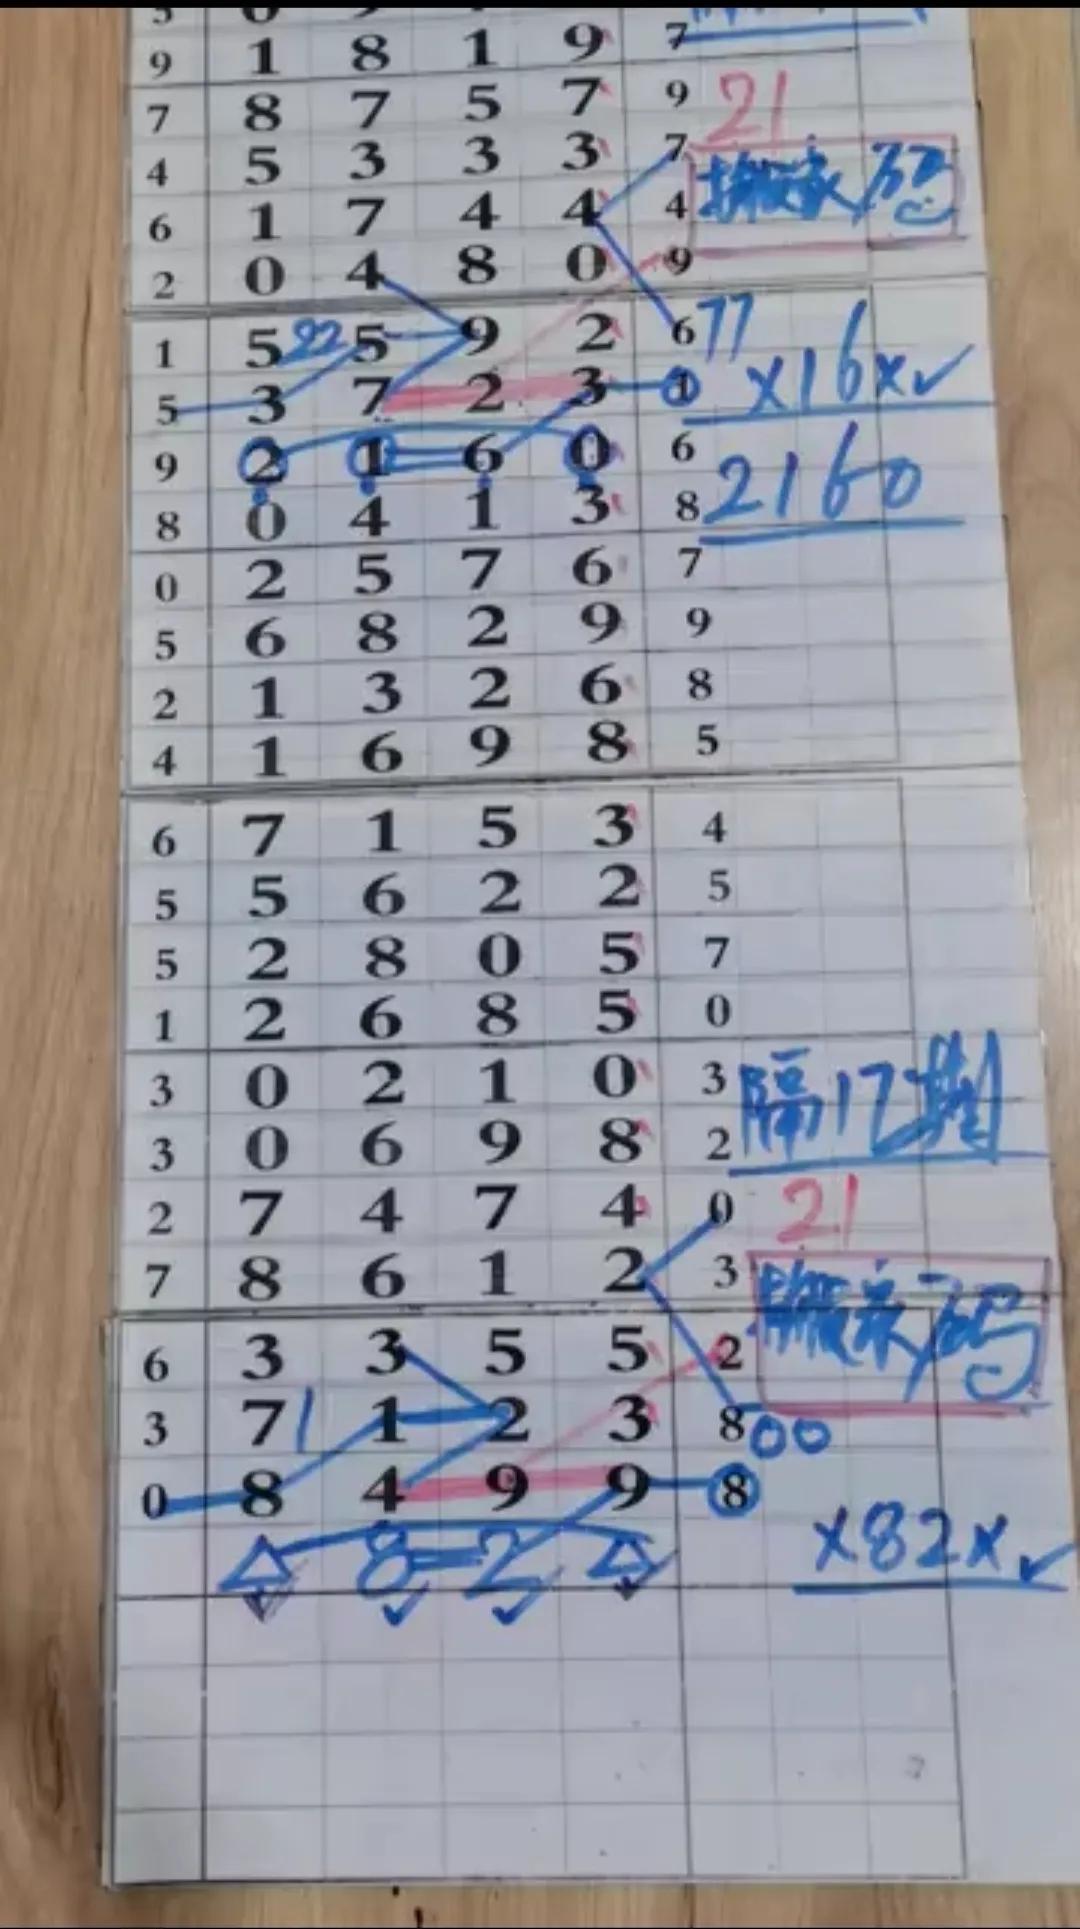 9 1 8 1 9 7
7 8 7 5 7 9 21
4 5 3 3 3 7
6 1 7 4 4 4
2 0 4 8 0 9
1 5 22 5 9 2 6 77
5 3 7 2 3 1 ×16×✓
9 2 1 6 0 6 2160
8 0 4 1 3 8
0 2 5 7 6 7
5 6 8 2 9 9
2 1 3 2 6 8
4 1 6 9 8 5
6 7 1 5 3 4
5 5 6 2 2 5
5 2 8 0 5 7
1 2 6 8 5 0
3 0 2 1 0 3 隔17期
3 0 6 9 8 2
2 7 4 7 4 0 21
7 8 6 1 2 3
6 3 3 5 5 2
3 7 1 1 2 3 8 00
0 8 4 9 9 8
8=2 ×82×✓